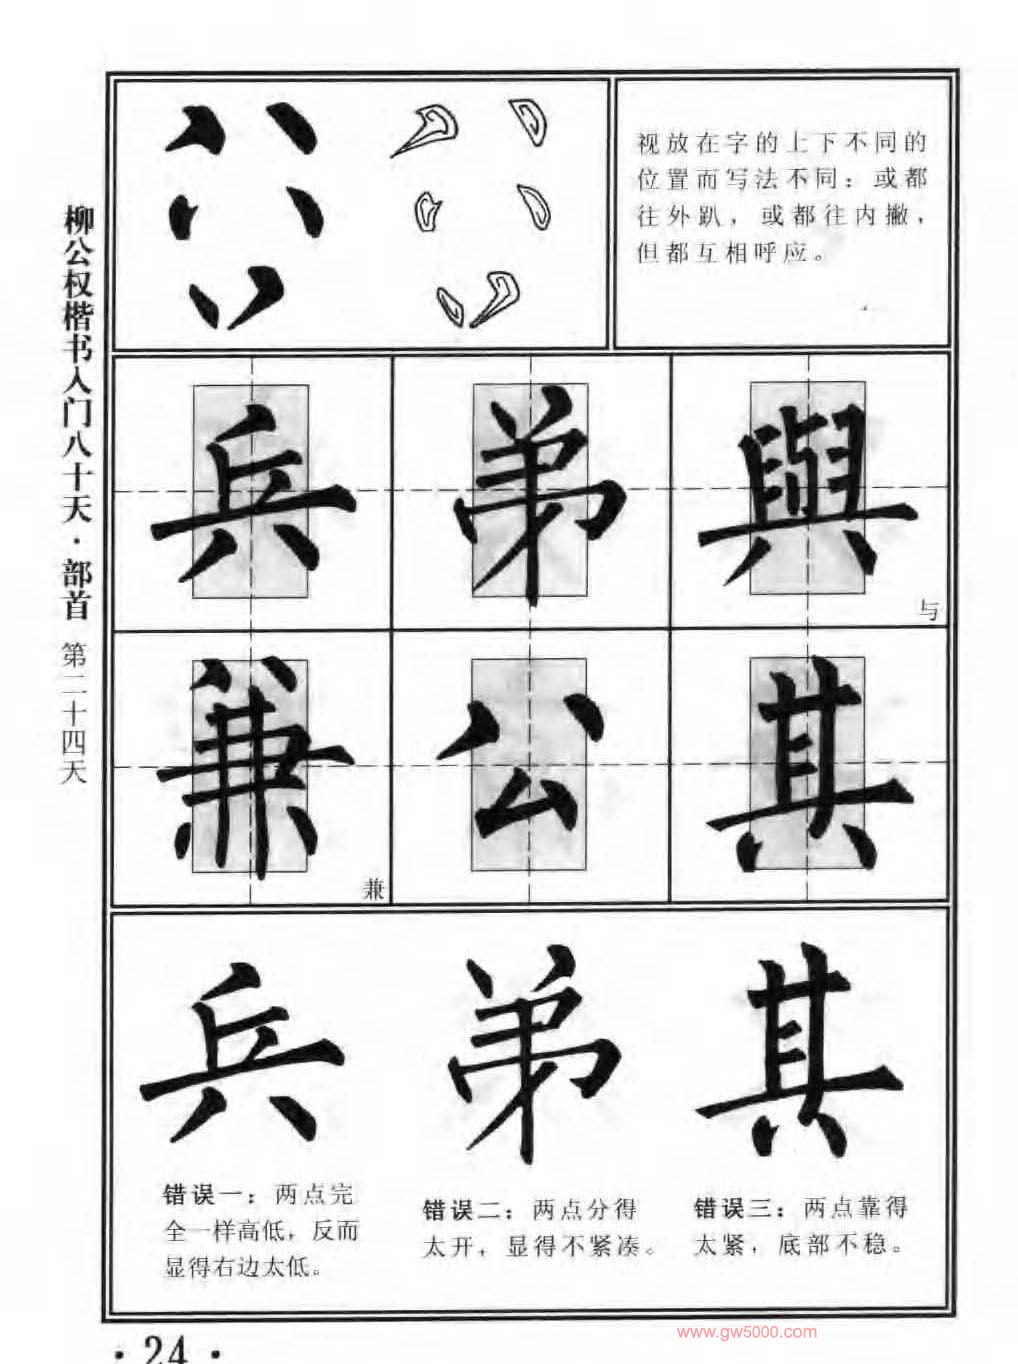 柳公权楷书入门八十天·部首 第二十四天
视放在字的上下不同的
位置而写法不同：或都
往外趴，或都往内撇，
但都互相呼应。
兵 弟 與
与
兼 公 其
兼
兵 弟 其
错误一：两点完
全一样高低，反而
显得右边太低。
错误二：两点分得
太开，显得不紧凑。
错误三：两点靠得
太紧，底部不稳。
www.gw5000.com
·24·